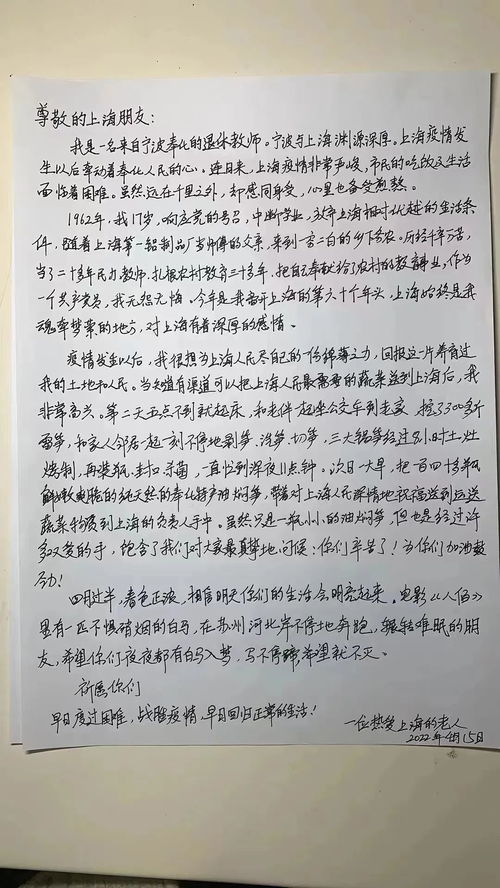 尊敬的上海朋友：
我是一名来自宁波奉化的退休教师。宁波与上海渊源深厚。上海疫情发
生以后牵动着奉化人民的心。连日来，上海疫情非常严峻，市民的吃饭及生活
面临着困难。虽然远在千里之外，却感同身受，心里也备受煎熬。
1962年，我17岁，响应党的号召，中断学业，放弃上海相对优越的生活条
件，随着上海第一铝制品厂当师傅的父亲，来到一穷二白的乡下务农。历经千辛万苦，
当了二十多年民办教师，扎根农村教育三十多年，把自己奉献给了农村的教育事业，作为
一个共产党员，我无怨无悔。今年是我离开上海的第六十个年头，上海始终是我
魂牵梦萦的地方，对上海有着深厚的感情。
疫情发生以后，我很想为上海人民尽自己的一份绵薄之力，回报这一片养育过
我的土地和人民。当知道有渠道可以把上海人民最需要的蔬菜送到上海后，我
非常高兴。第二天五点不到就起床，和老伴一起坐公交车到老家，挖了300多斤
雷笋，和家人邻居一起一刻不停地剥笋、洗笋、切笋，三大锅笋经过8小时土灶
烧制，再装瓶、封口、杀菌，一直忙到深夜11点钟。次日一大早，把一百四十多瓶
鲜嫩爽脆的纯天然的奉化特产油焖笋，带着对上海人民深情地祝福送到运送
蔬菜物资到上海的负责人手中。虽然只是一瓶小小的油焖笋，但也是经过许
多双爱的手，饱含了我们对大家最真挚地问候：你们辛苦了！为你们加油鼓
劲！
四月过半，春色正浓，相信明天你们的生活会明亮起来。电影《八佰》
里有一匹不惧硝烟的白马，在苏州河北岸不停地奔跑，辗转难眠的朋
友，希望你们夜夜都有白马入梦，马不停蹄，希望就不灭。
祈愿你们
早日度过困难，战胜疫情，早日回归正常的生活！
一位热爱上海的老人
2022年4月15日